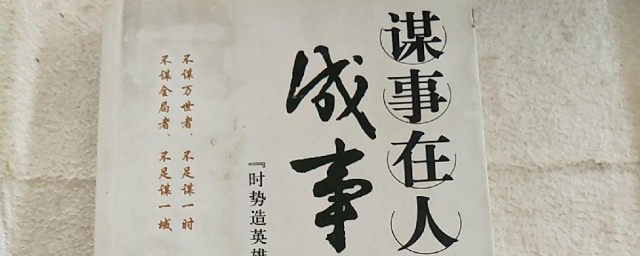 谋事在人
成事
『时势造英雄
不谋万世者，不足谋一时
不谋全局者，不足谋一域